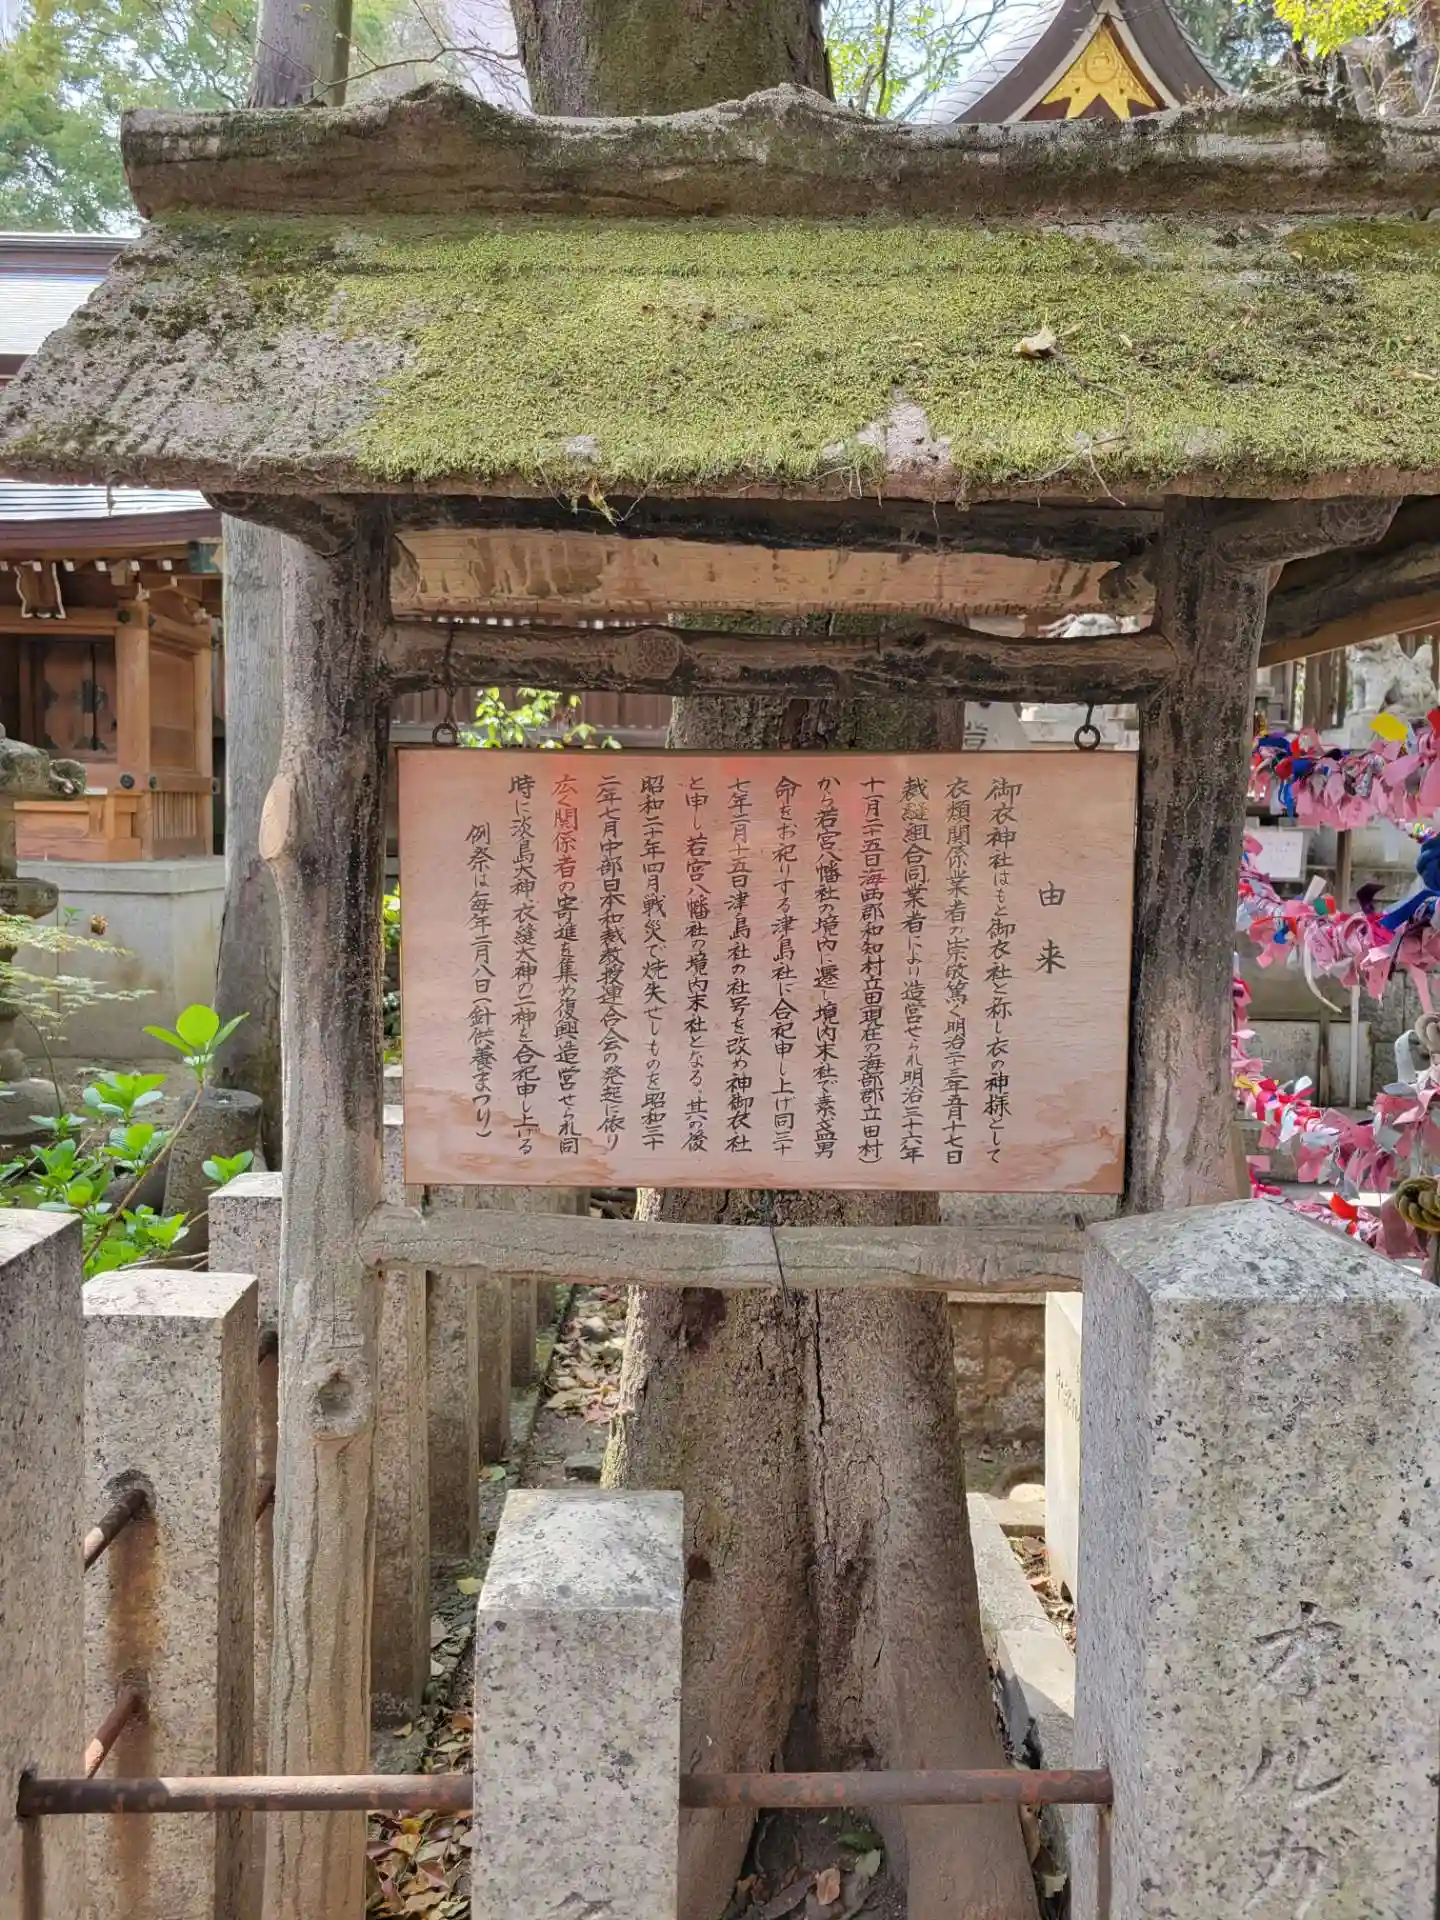 由来
御衣神社はもと御衣社と称し衣の神様として
衣類関係業者の崇敬篤く明治二十三年五月十七日
裁縫組合同業者により造営せられ明治三十六年
十一月二十五日海西郡和知村立田現在の海部郡立田村)
から若宮八幡社の境内に遷し境内末社で素盞男
命をお祀りする津島社に合祀申し上げ同三十
七年二月十五日津島社の社号を改め神御衣社
と申し若宮八幡社の境内末社となる、其の後
昭和二十年四月戦災で焼失せしものを昭和三十
二年七月中部日本和裁教授連合会の発起に依り
広く関係者の寄進を集め復興造営せられ同
時に淡島大神、衣縫大神の二神を合祀申し上げる
例祭は毎年二月八日(針供養まつり)
オルガ